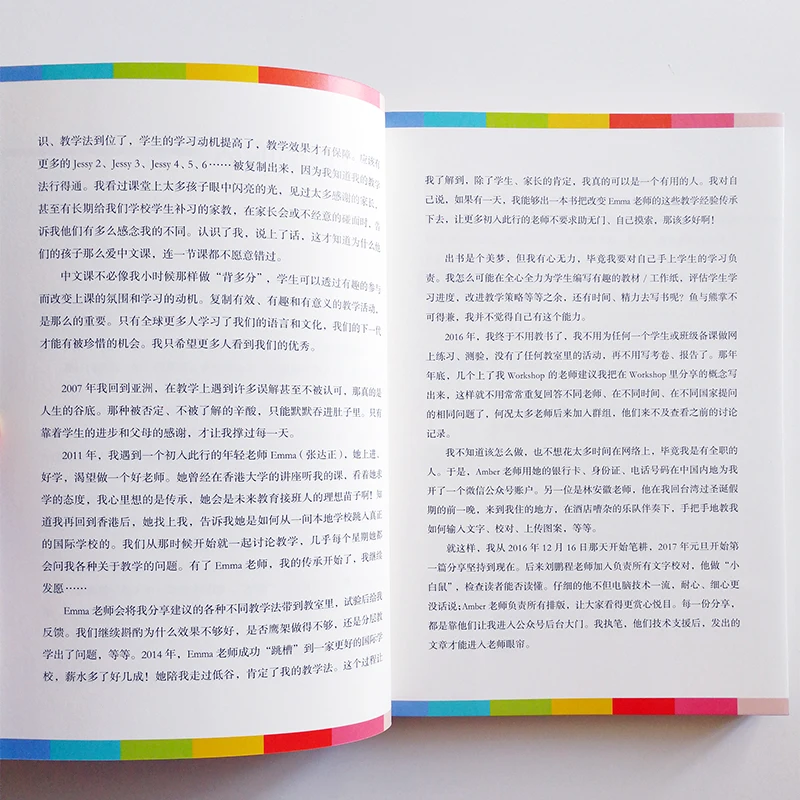 识、教学法到位了，学生的学习动机提高了，教学效果才有保障。应该有
更多的 Jessy 2、Jessy 3、Jessy 4、5、6……被复制出来，因为我知道我的教学
法行得通。我看过课堂上太多孩子眼中闪亮的光，见过太多感谢的家长，
甚至有长期给我们学校学生补习的家教，在家长会或不经意的碰面时，告
诉我他们有多么感念我的不同。认识了我，说上了话，这才知道为什么他
们的孩子那么爱中文课，连一节课都不愿意错过。
中文课不必像我小时候那样做“背多分”，学生可以透过有趣的参与
而改变上课的氛围和学习的动机。复制有效、有趣和有意义的教学活动，
是那么的重要。只有全球更多人学习了我们的语言和文化，我们的下一代
才能有被珍惜的机会。我只希望更多人看到我们的优秀。
2007 年我回到亚洲，在教学上遇到许多误解甚至不被认可，那真的是
人生的谷底。那种被否定、不被了解的辛酸，只能默默吞进肚子里。只有
靠着学生的进步和父母的感谢，才让我撑过每一天。
2011 年，我遇到一个初入此行的年轻老师 Emma（张达正），她上进、
好学，渴望做一个好老师。她曾经在香港大学的讲座听我的课，看着她求
学的态度，我心里想的是传承，她会是未来教育接班人的理想苗子啊！知
道我再回到香港后，她找上我，告诉我她是如何从一间本地学校跳入真正
的国际学校的。我们从那时候开始就一起讨论教学，几乎每个星期她都
会问我各种关于教学的问题。有了 Emma 老师，我的传承开始了，我继续
发愿……
Emma 老师会将我分享建议的各种不同教学法带到教室里，试验后给我
反馈。我们继续斟酌为什么效果不够好，是否鹰架做得不够，还是分层教
学出了问题，等等。2014 年，Emma 老师成功“跳槽”到一家更好的国际学
校，薪水多了好几成！她陪我走过低谷，肯定了我的教学法。这个过程让
我了解到，除了学生、家长的肯定，我真的可以是一个有用的人。我对自
己说，如果有一天，我能够出一本书把改变 Emma 老师的这些教学经验传承
下去，让更多初入此行的老师不要求助无门、自己摸索，那该多好啊！
出书是个美梦，但我有心无力，毕竟我要对自己手上学生的学习负
责。我怎么可能在全心全力为学生编写有趣的教材 / 工作纸，评估学生学
习进度，改进教学策略等等之余，还有时间、精力去写书呢？鱼与熊掌不
可得兼，我并不觉得自己有这个能力。
2016 年，我终于不用教书了，我不用为任何一个学生或班级备课做网
上练习、测验，没有了任何教室里的活动，再不用写考卷、报告了。那年
年底，几个上了我 Workshop 的老师建议我把在 Workshop 里分享的概念写
出来，这样就不用常常重复回答不同老师、在不同时间、在不同国家提问
的相同问题了，何况太多老师后来加入群组，他们来不及查看之前的讨论
记录。
我不知道该怎么做，也不想花太多时间在网络上，毕竟我是有全职的
人。于是，Amber 老师用她的银行卡、身份证、电话号码在中国内地为我
开了一个微信公众号账户。另一位是林安徽老师，他在我回台湾过圣诞假
期的前一晚，来到我住的地方，在酒店嘈杂的乐队伴奏下，手把手地教我
如何输入文字、校对、上传图案，等等。
就这样，我从 2016 年 12 月 16 日那天开始笔耕，2017 年元旦开始第
一篇分享坚持到现在。后来刘鹏程老师加入负责所有文字校对，他做“小
白鼠”，检查读者能否读懂。仔细的他不但电脑技术一流，耐心、细心更
没话说；Amber 老师负责所有排版，让大家看得更赏心悦目。每一份分享，
都是靠他们让我进入公众号后台大门。我执笔，他们技术支援后，发出的
文章才能进入老师眼帘。